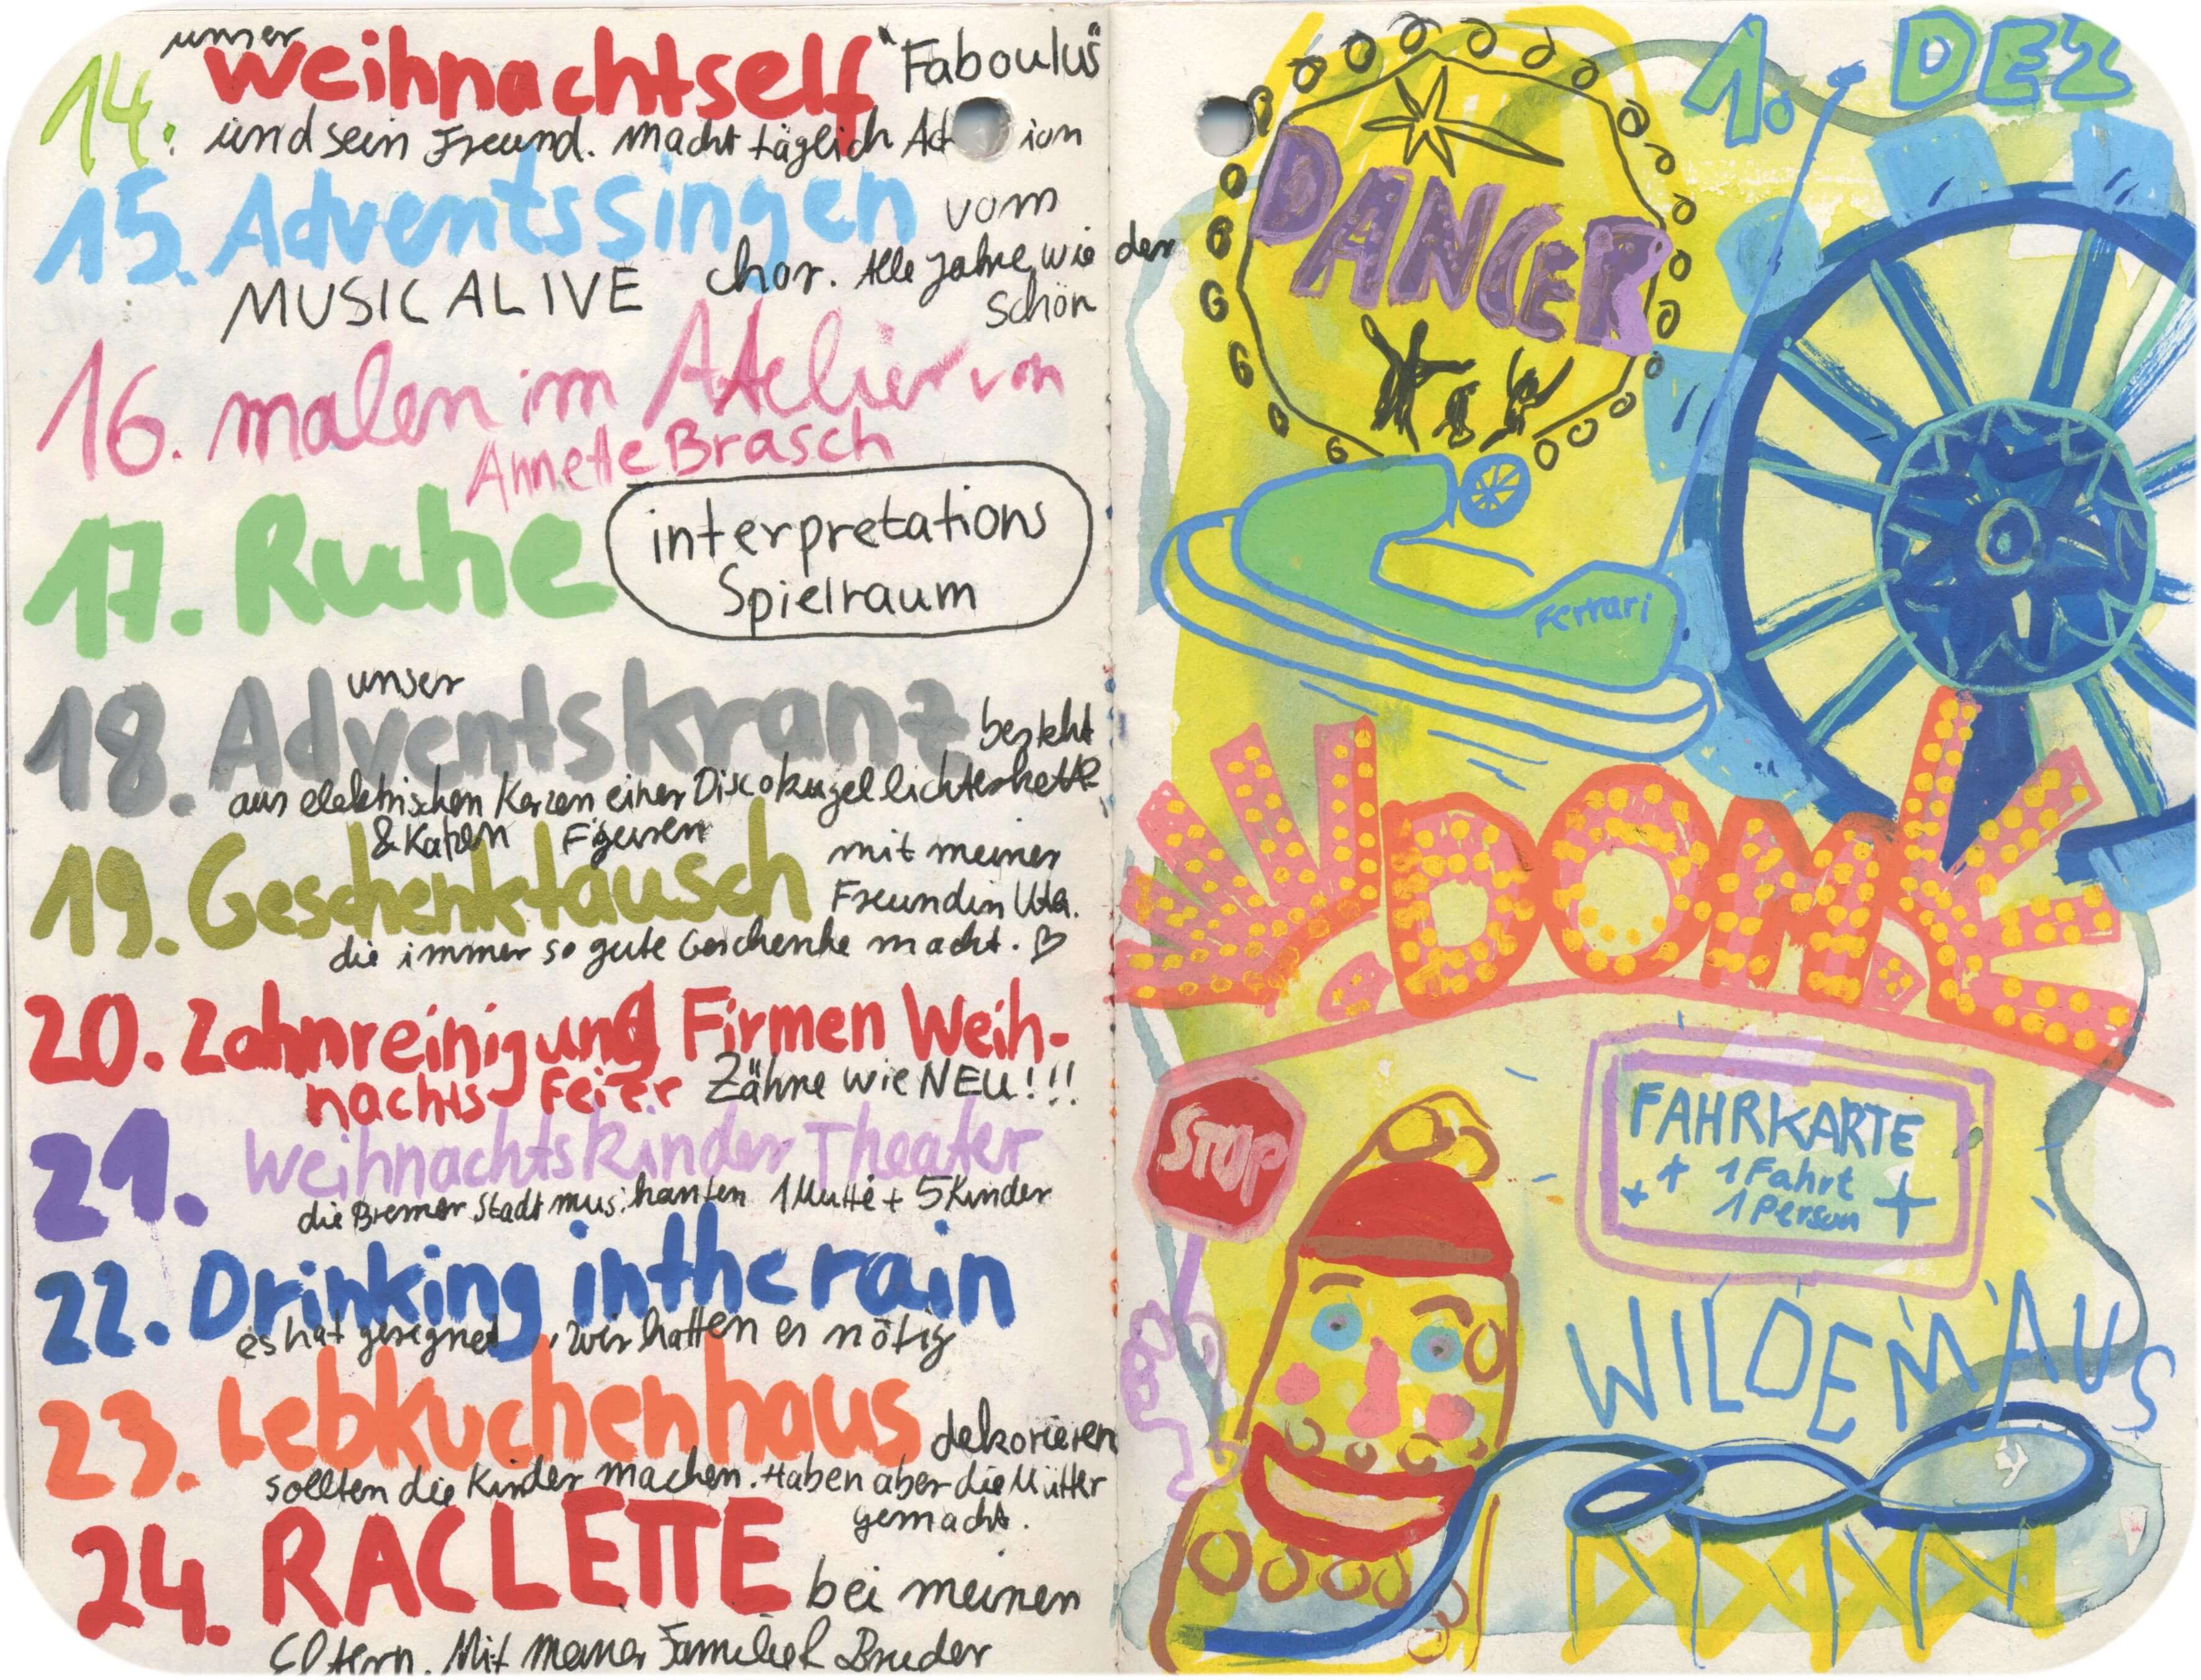 unser
14. Weihnachtself "Faboulus"
und sein Freund. macht täglich Action
15. Adventssingen vom
MUSIC ALIVE chor. Alle Jahre wie der
schön
16. malen im Atelier von
Annette Brasch
17. Ruhe
interpretations
Spielraum
unser
18. Adventskranz besteht
aus elektrischen Kerzen einer Discokugel lichterkette
& Katzen Figuren
19. Geschenktausch mit meiner
Freundin Uta.
die immer so gute Geschenke macht.
20. Zahnreinigung Firmen Weih-
nachts Feier Zähne wie NEU!!!
21. Weihnachtskinder Theater
die Bremer Stadtmusikanten 1 Mutti + 5 Kinder
22. Drinking in the rain
es hat geregnet, wir hatten es nötig
23. Lebkuchenhaus dekorieren
sollten die Kinder machen. Haben aber die Mütter
gemacht.
24. RACLETTE bei meinen
Eltern. Mit meiner Familie & Bruder
1. DEZ
DANCER
Ferrari
DOM
STOP
FAHRKARTE
1 Fahrt
1 Person
WILDE MAUS